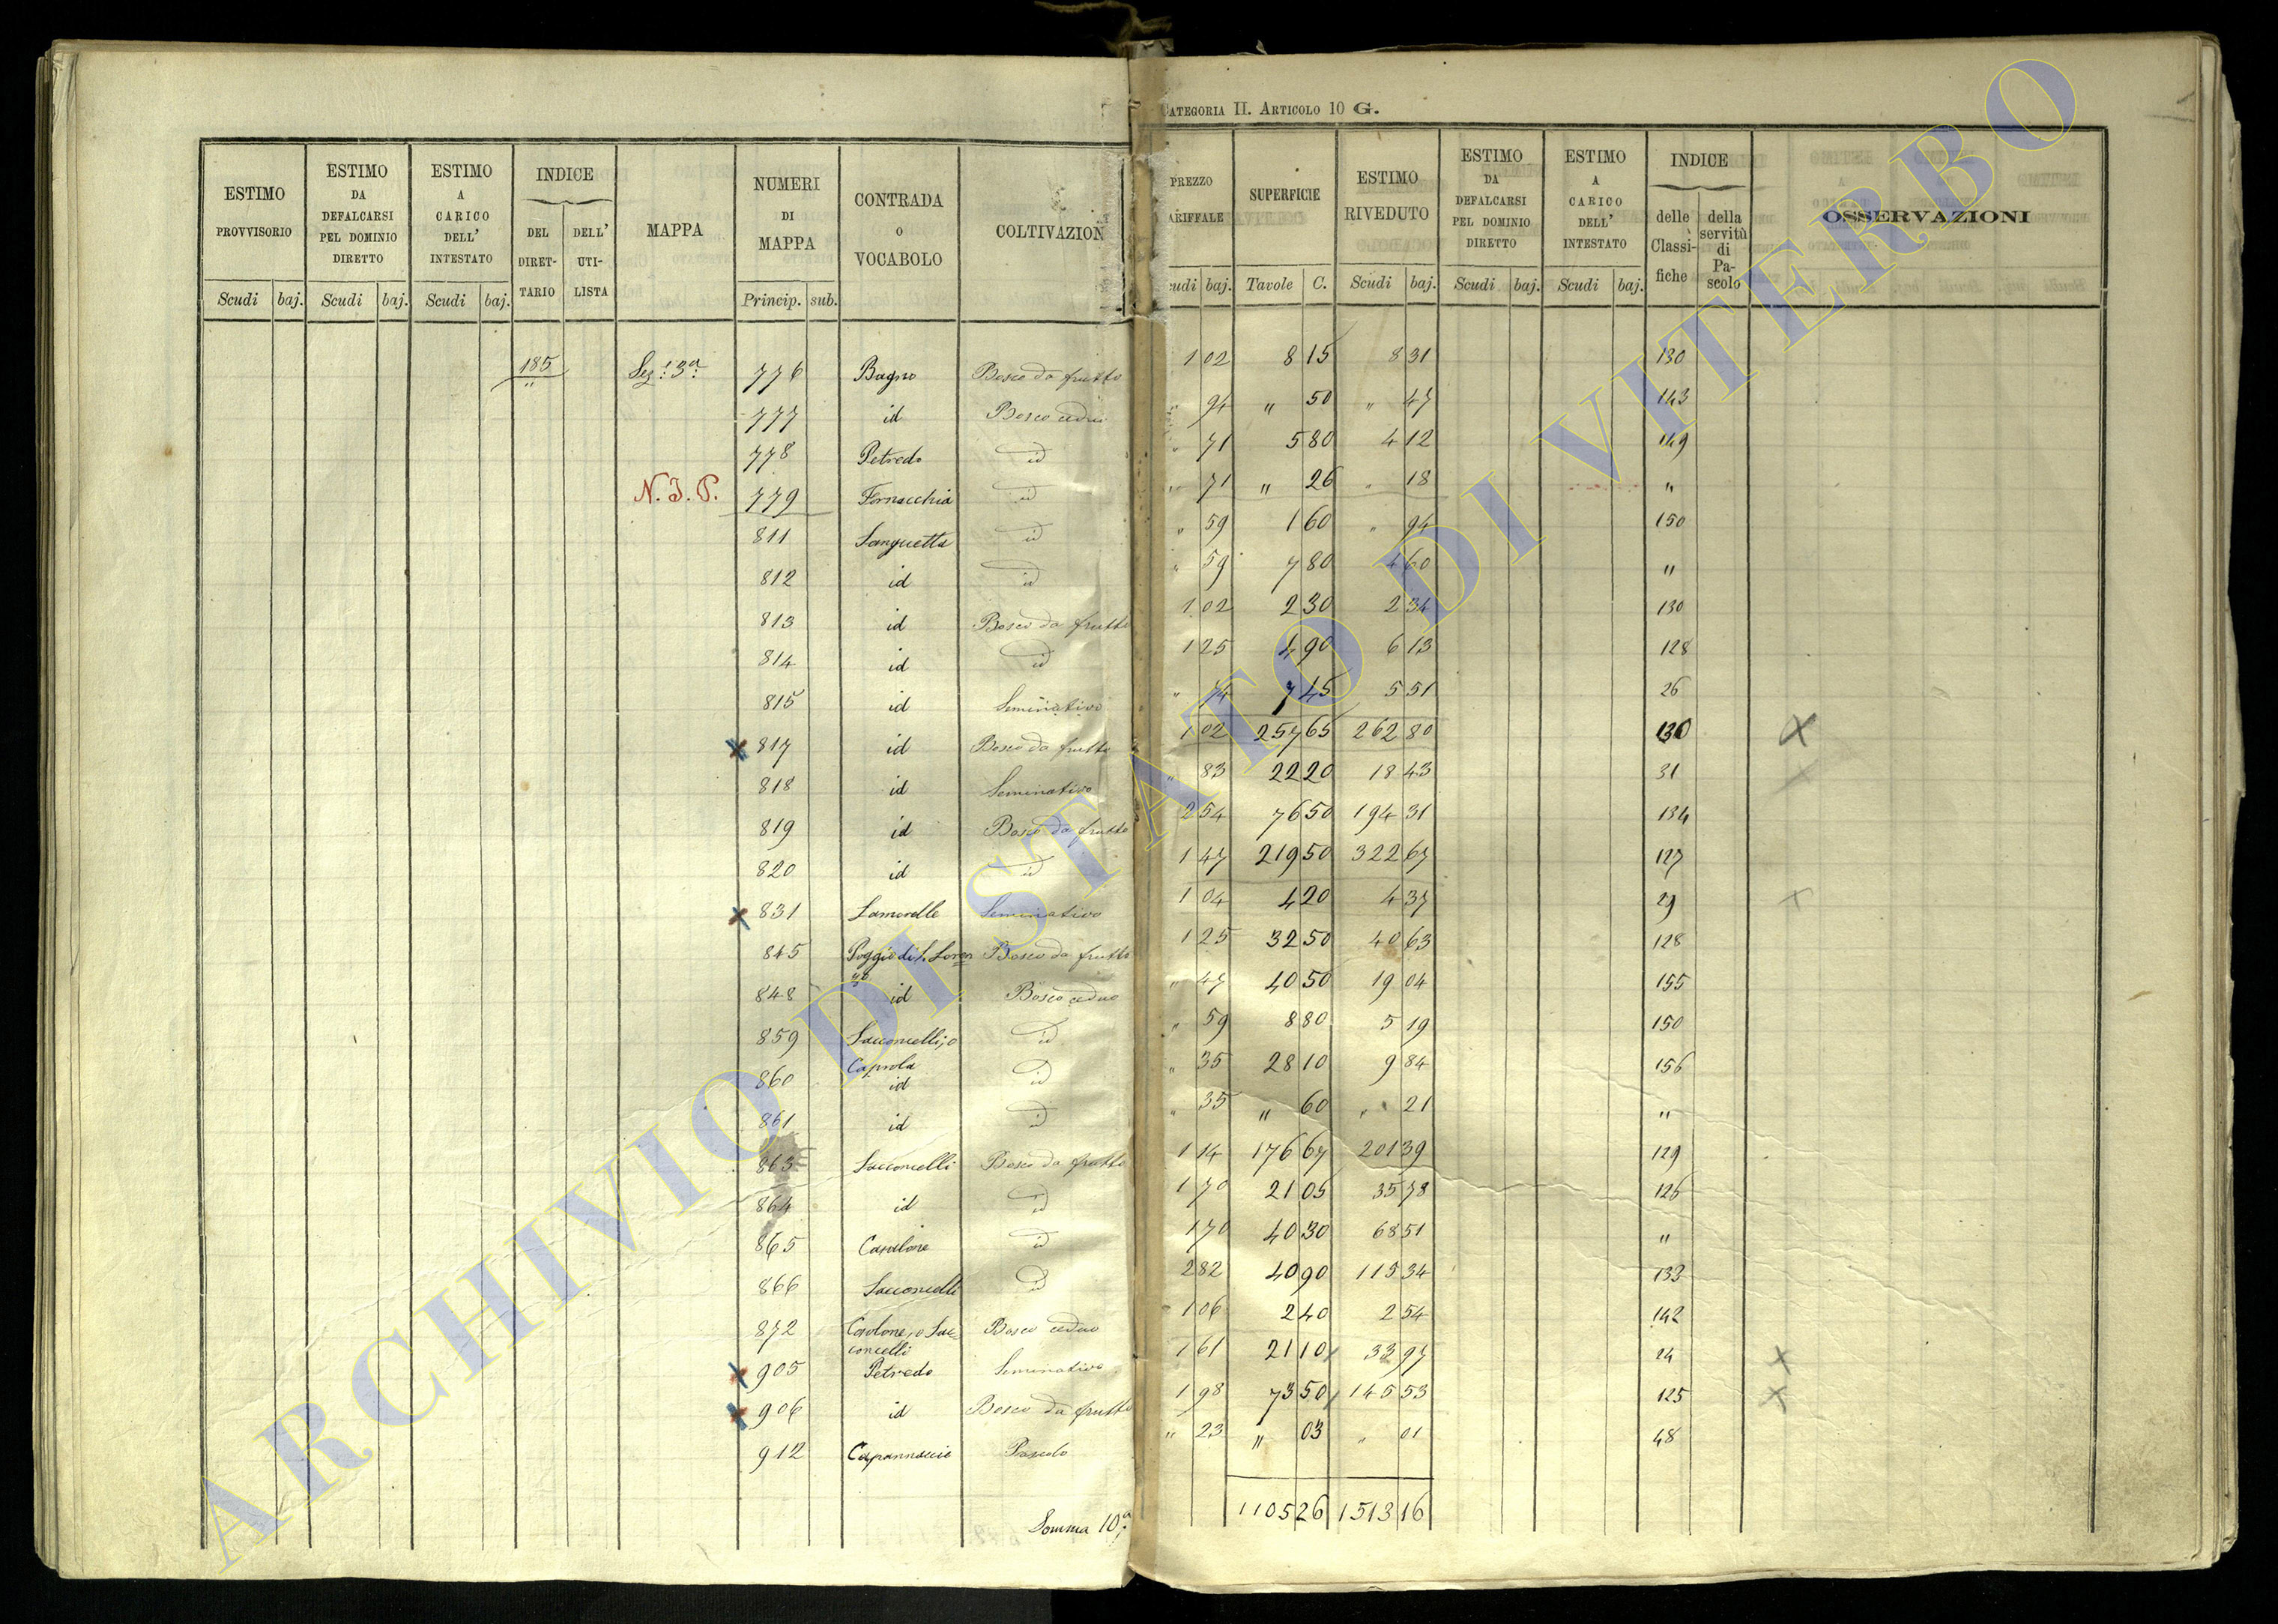 CATEGORIA II. ARTICOLO 10 G.
ESTIMO PROVVISORIO Scudi baj.
ESTIMO DA DEFALCARSI PEL DOMINIO DIRETTO Scudi baj.
ESTIMO A CARICO DELL' INTESTATO Scudi baj.
INDICE DEL DIRET-TARIO DELL' UTI-LISTA
MAPPA
NUMERI DI MAPPA Princip. sub.
CONTRADA O VOCABOLO
COLTIVAZION
PREZZO ARIFFALE cudi baj.
SUPERFICIE Tavole C.
ESTIMO RIVEDUTO Scudi baj.
ESTIMO DA DEFALCARSI PEL DOMINIO DIRETTO Scudi baj.
ESTIMO A CARICO DELL' INTESTATO Scudi baj.
INDICE delle Classi-fiche della servitù di Pa-scolo
OSSERVAZIONI
185 " Sez: 3a: 776 Bagno Bosco da frutto 1 02 8 15 8 31 130
777 id Bosco ceduo " 94 " 50 " 47 143
778 Petredo id " 71 5 80 4 12 149
N. I. P. 779 Fornacchia id " 71 " 26 " 18 "
811 Sanguetta id " 59 1 60 " 94 150
812 id id " 59 7 80 4 60 "
813 id Bosco da frutto 1 02 2 30 2 34 130
814 id id 1 25 4 90 6 13 128
815 id Seminativo " 74 7 45 5 51 26
x 817 id Bosco da frutto 1 02 257 65 262 80 130 x
818 id Seminativo " 83 22 20 18 43 31 x
819 id Bosco da frutto 2 54 76 50 194 31 134
820 id id 1 47 219 50 322 67 127
x 831 Lamorelle Seminativo 1 04 4 20 4 37 29 x
845 Poggio di S. Loren= Bosco da frutto 1 25 32 50 40 63 128
zo
848 id Bosco ceduo " 47 40 50 19 04 155
859 Sacconcelli, o id " 59 8 80 5 19 150
Caprola
860 id id " 35 28 10 9 84 156
861 id id " 35 " 60 " 21 "
863 Sacconcelli Bosco da frutto 1 14 176 67 201 39 129
864 id id 1 70 21 05 35 78 126
865 Casalone id 1 70 40 30 68 51 "
866 Sacconcelli id 2 82 40 90 115 34 133
872 Casalone, o Sac= Bosco ceduo 1 06 2 40 2 54 142
concelli
x 905 Petredo Seminativo 1 61 21 10 33 97 24 x
x 906 id Bosco da frutto 1 98 73 50 145 53 125 x
912 Capannaccie Pascolo " 23 " 03 " 01 48
Somma 10a: 1105 26 1513 16
ARCHIVIO DI STATO DI VITERBO